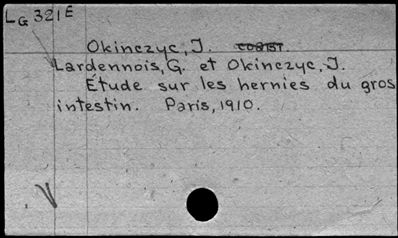 LG 321E
Okinczyc, J.
Lardennois, G. et Okinczyc, J.
Étude sur les hernies du gros
intestin. Paris, 1910.